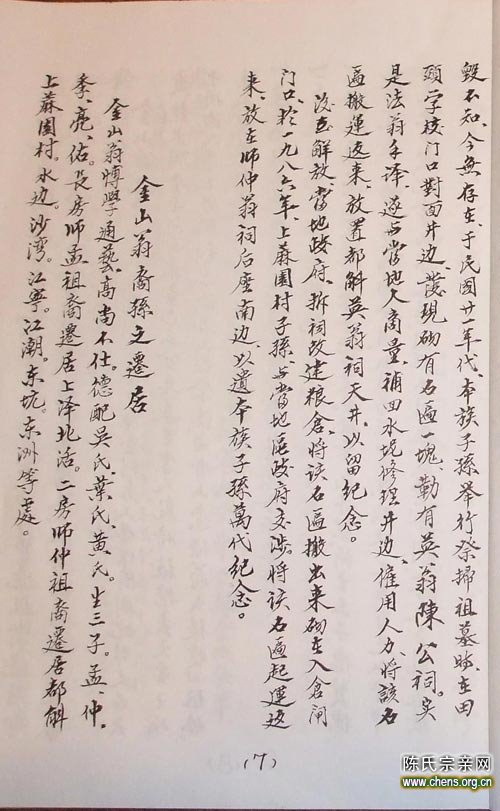 毁不知,今無存在,于民国廿一年代,本族子孫举行祭掃祖墓時,在田
頭学校门口對面井边,發現砌有名匾一塊,勒有英翁陳公祠。实
是法翁手泽,遂与當地人商量,補回水坭修理井边,僱用人力,將該名
匾搬運返来,放置都斛英翁祠天井,以留纪念。
及至解放當地政府,拆祠改建粮倉,将该名匾搬出来砌在入倉闸
门口,於一九八六年,上蔴園村子孫,与當地區政府交涉,将该名匾起運返
来,放在师仲翁祠后座南边,以遺本族子孫萬代纪念。
金山翁裔孫之遷居
金山翁博學通藝,高尚不仕。德配吴氏,葉氏,黄氏。生三子。孟,仲,
季,亮,佑。長房师孟,祖裔遷居上泽北活。二房师仲祖裔遷居都斛
上蔴園村。水边。沙湾。江寧。江潮。东坑。东洲等處。
(7)
陈氏宗亲网
www.chens.org.cn